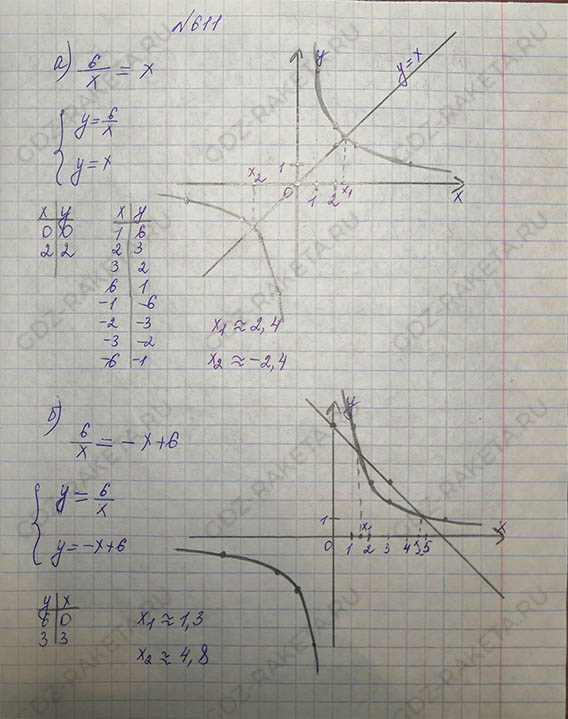 №611
а) 6/x = x
{ y = 6/x
y = x
x | y
0 | 0
2 | 2
x | y
1 | 6
2 | 3
3 | 2
6 | 1
-1 | -6
-2 | -3
-3 | -2
-6 | -1
y
y=x
x₂
1
0
1 2 x₁
x
x₁ ≈ 2,4
x₂ ≈ -2,4
б) 6/x = -x+6
{ y = 6/x
y = -x+6
y | x
6 | 0
3 | 3
y
1
0 1 x₁ 2 3 4 x₂ 5
x
x₁ ≈ 1,3
x₂ ≈ 4,8
GDZ-RAKETA.RU